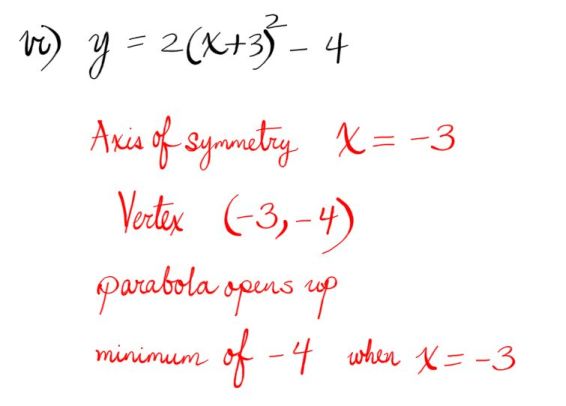 vi) y = 2(x+3)² - 4
Axis of symmetry x = -3
Vertex (-3, -4)
parabola opens up
minimum of -4 when x = -3